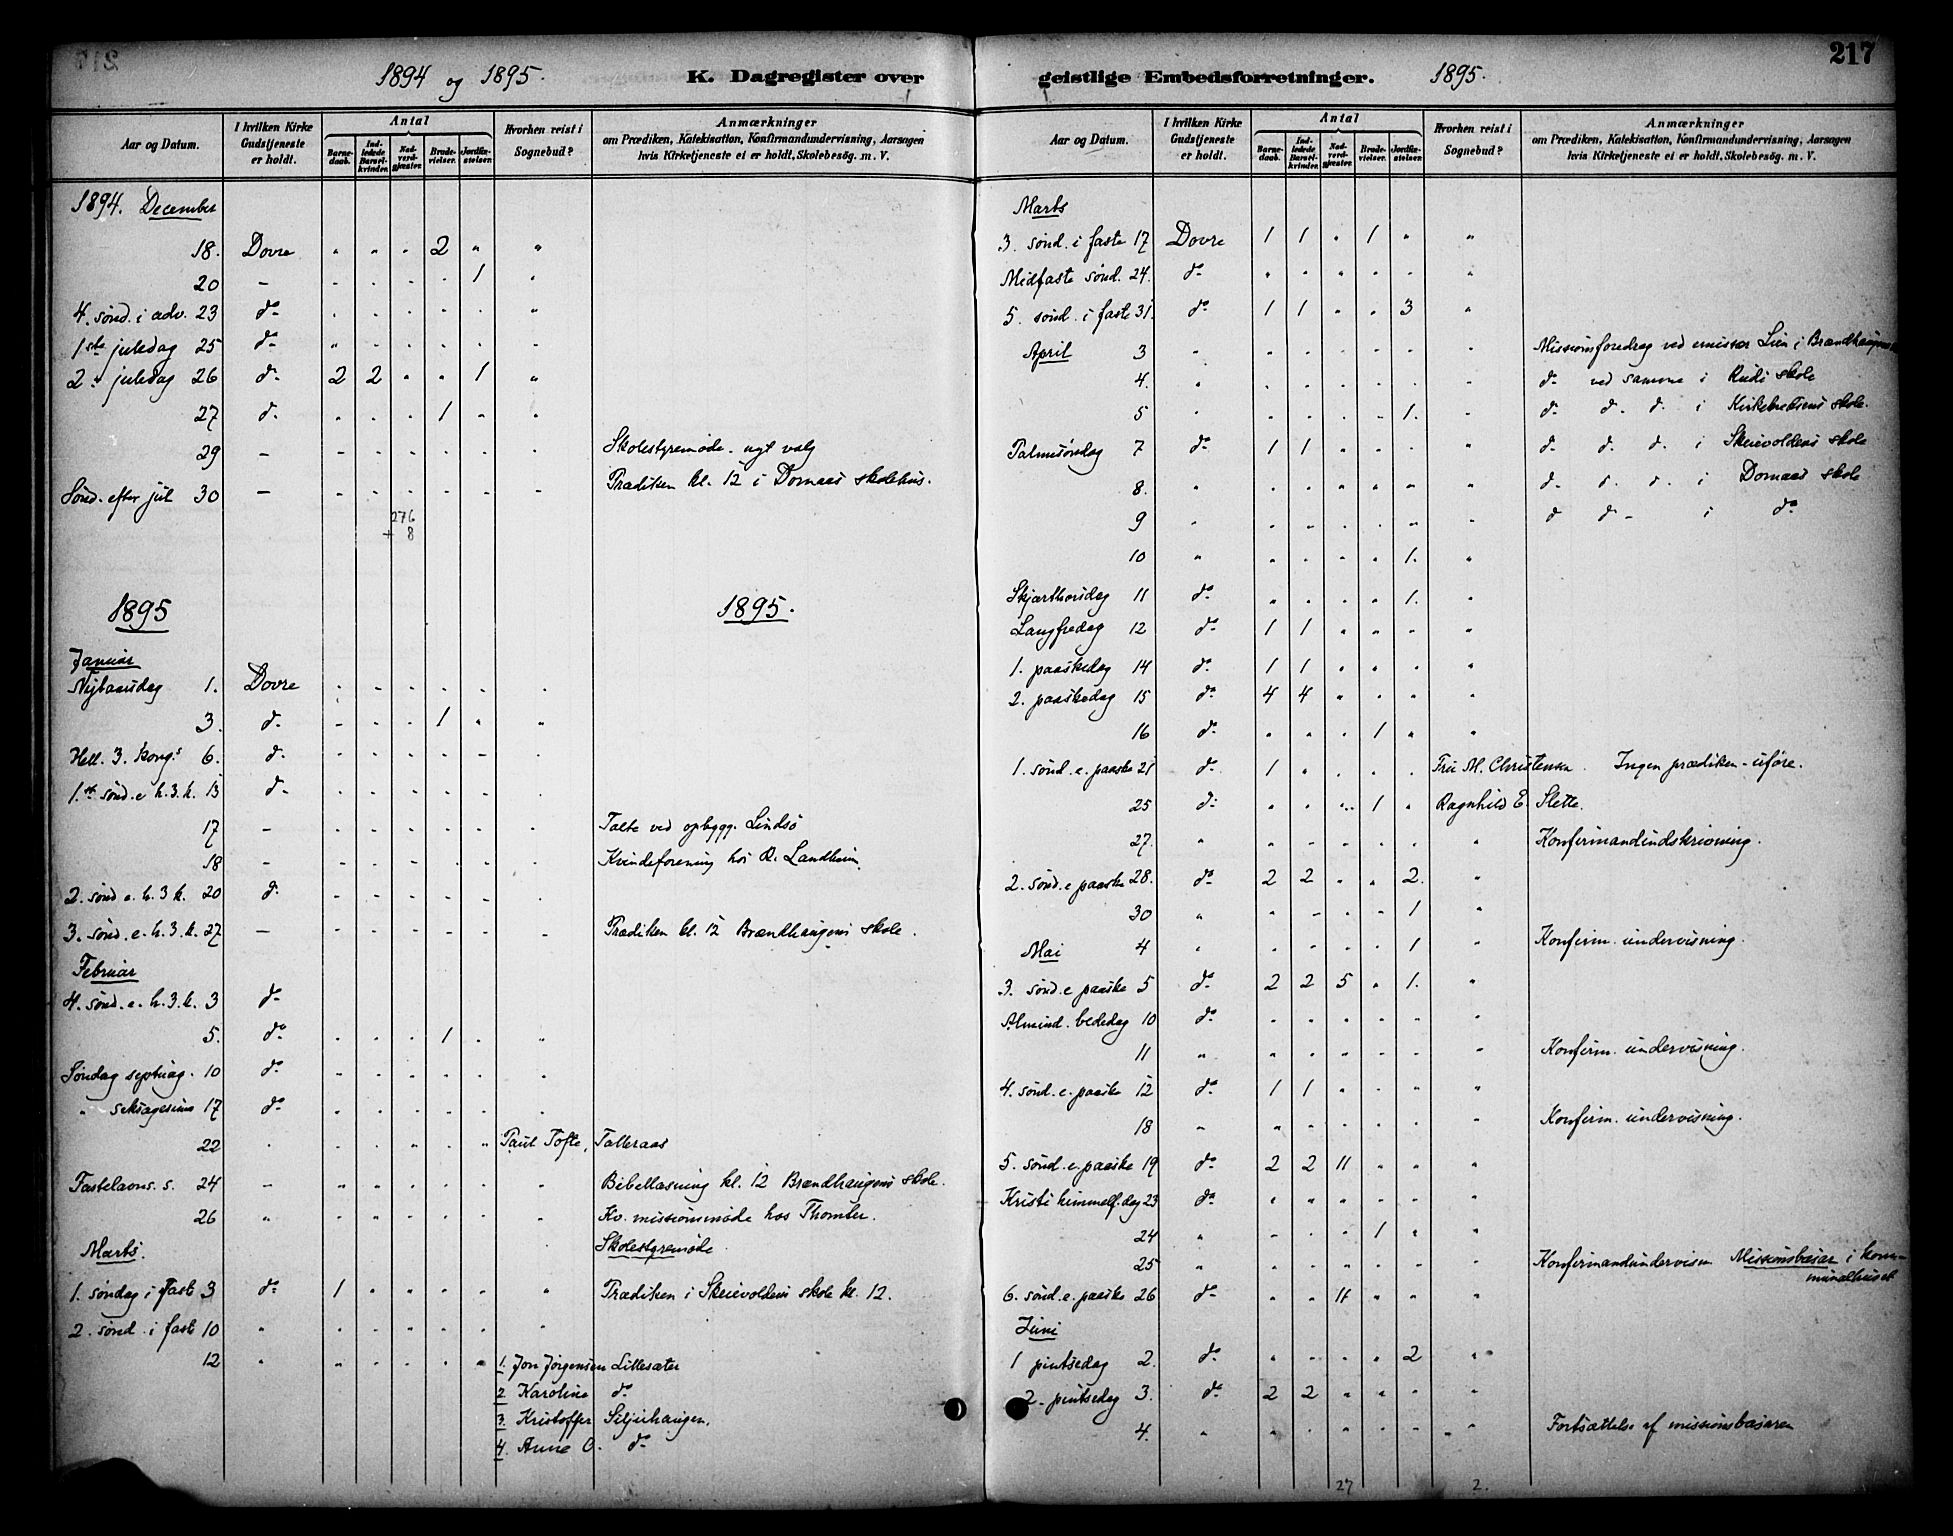 1894 og 1895. K. Dagregister over
Aar og Datum. I hvilken Kirke Gudstjeneste er holdt. Antal Barnedaab. Indledede Barselkvinder. Nadverdgjæster. Brudevielser. Jordfæstelser. Hvorhen reist i Sognebud? Anmærkninger om Prædiken, Katekisation, Konfirmandundervisning, Aarsagen hvis Kirketjeneste ei er holdt, Skolebesøg. m. V.
1894. December
18. Dovre " " " 2 " "
20 – " " " " 1 "
4. sønd. i adv. 23 do " " " " " "
1ste juledag 25 do " " " " " "
2. juledag 26 d. 2 2 " " 1 "
27 d. " " " 1 " "
29 – " " " " " " Skolestyremøde. nyt valg
Sønd. efter jul 30 – " " " " " " Prædiken kl. 12 i Domaas skolehus.
276
+ 8
1895 1895.
Januar
Nytaarsdag 1. Dovre " " " " " "
3. d. " " " 1 " "
Hell. 3. kong.s 6. d. " " " " " "
1.st sønd. e h. 3. k. 13 d. " " " " " "
17 – " " " " " " Talte ved opbygg. Lindsø
18 – " " " " " " Kvindeforening hos R. Landheim
2. sønd e. h. 3 k. 20 d. " " " " " "
3. sønd. e. h. 3. k. 27 – " " " " " " Prædiken kl. 12 Brændhaugens skole.
Februar
4. sønd. e. h. 3. k. 3 d.
5. do " " " 1 " "
Søndag septuag. 10 do " " " " " "
" seksagesima 17 do " " " " " "
22 " " " " " " Paul Tofte, Talleraas
Fastelavns. s. 24 – " " " " " " Bibellæsning kl. 12 Brændhaugens skole.
26 " " " " " " " Kv. missionsmøde hos Thomter.
Marts. Skolestyremøde
1. søndag i faste 3 do 1 " " " " " Prædiken i Skeievoldens skole kl. 12.
2. sønd. i faste 10 " " " " " " "
12 " " " " " " 1. Jon Jørgensen Lillesæter
2 Karoline do
3. Kristoffer Siljuhaugen.
4. Anne O. do
geistlige Embedsforretninger. 1895. 217
Aar og Datum. I hvilken Kirke Gudstjeneste er holdt. Antal Barnedaab. Indledede Barselkvinder. Nadverdgjæster. Brudevielser. Jordfæstelser. Hvorhen reist i Sognebud? Anmærkninger om Prædiken, Katekisation, Konfirmandundervisning, Aarsagen hvis Kirketjeneste ei er holdt, Skolebesøg. m. V.
Marts
3. sønd. i faste 17 Dovre 1 1 " 1 " "
Midfaste sønd. 24. do " " " " " "
5. sønd. i faste 31. do 1 1 " " 3 "
April 3 " " " " " " " Missionsforedrag ved emissær Lien i Brændhaugens
4. " " " " " " " do ved samme i Rudi skole
5 " " " " " 1. " do d. d. i Kirkekredsens skole.
Palmesøndag 7 do 1 1 " " " " d. d. d. i Skeievoldens skole
8. " " " " " " " d. d. d. i Domaas skole
9 " " " " " " " d d– i do
10 " " " " " 1. "
Skjærthorsdag 11 do " " " " 1. "
Langfredag 12 do 1 1 " " " "
1. paaskedag 14 do 1 1 " " " "
2. paaskedag 15 do 4 4 " " " "
16 do " " " 1 " "
1. sønd. e. paaske 21 do 1 " " " " Fru M. Christensen Ingen prædiken - uføre.
25 do " " " 1 " Ragnhild E. Slette.
27. " " " " " " " Konfirmandindskrivning.
2. sønd. e paaske 28. do 2 2 " " 2. "
30 " " " " " 1 "
Mai 4 " " " " " 1 " Konfirm. undervisning.
3. sønd. e paaske 5 do 2 2 5 " 1. "
Almind. bededag 10 do " " " " " "
11 " " " " " " " Konfirm. undervisning.
4. sønd. e. paaske 12 do 1 1 " " " "
18 " " " " " " " Konfirm. undervisning.
5. sønd. e. paaske 19 do 2 2 11 " " "
Kristi himmelf. dag 23 do " " " " " "
24 " " " " 1 " "
25 " " " " " " " Konfirmandundervisn Missionsbasar i kommunalhuset
6. sønd. e. paaske 26 do " " 11 " " "
Juni
1 pintsedag 2. do " " " " 2 "
2. pintsedag 3. do 2 2 " " " "
4. " " " " " " " Fortsættelse af missionsbasaren
27 2.